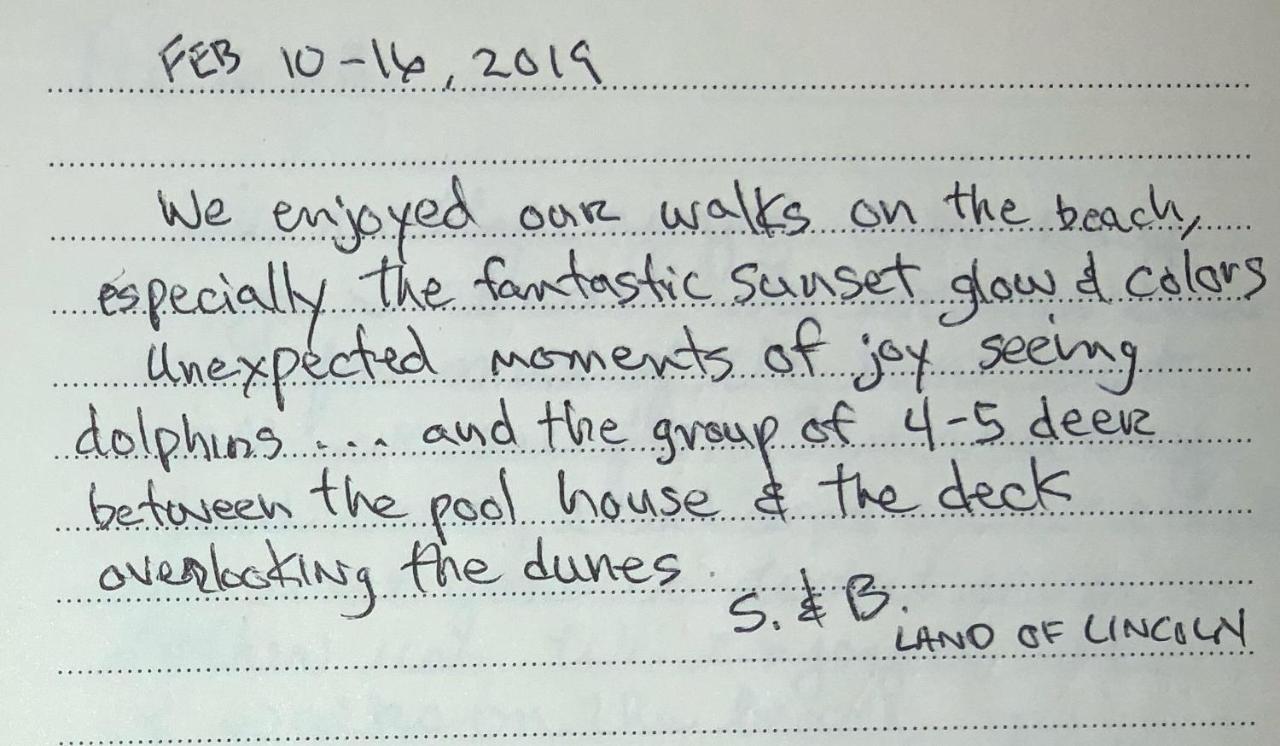 FEB 10-16, 2019
We enjoyed our walks on the beach,
especially the fantastic sunset glow & colors
Unexpected moments of joy seeing
dolphins .... and the group of 4-5 deer
between the pool house & the deck
overlooking the dunes.
S. & B.
LAND OF LINCOLN